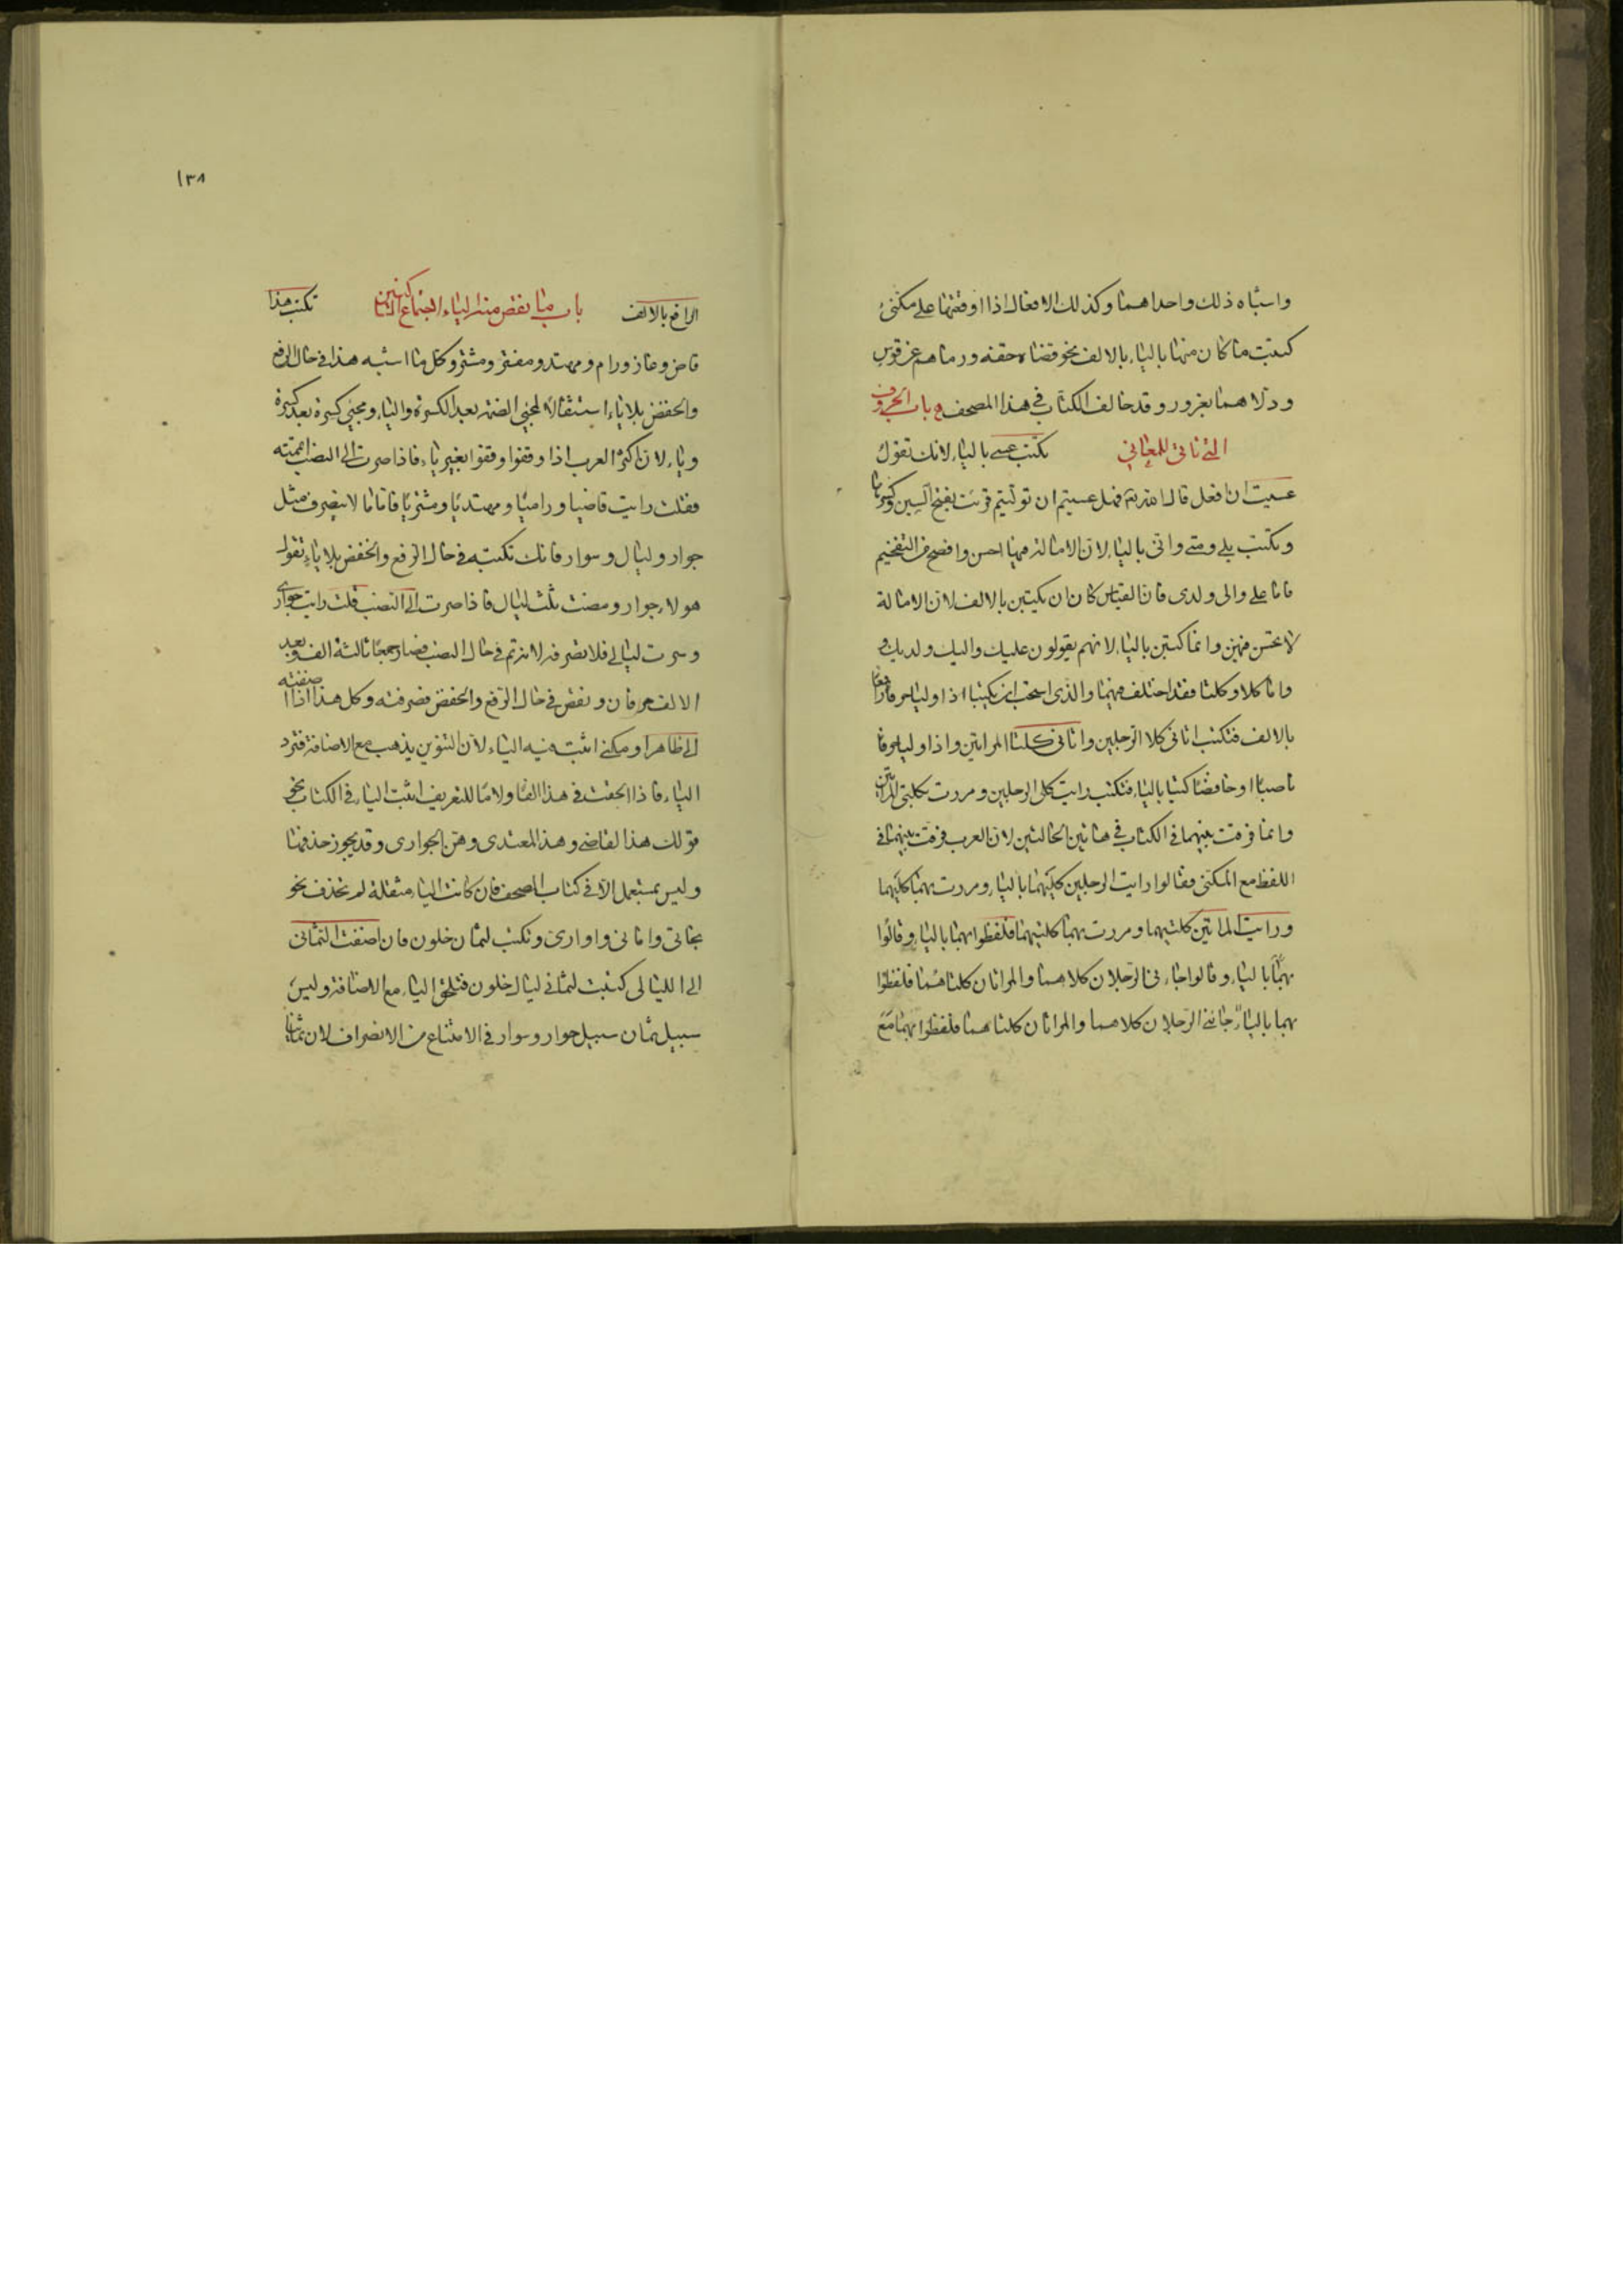 واشباه ذلك واحداهما وكذلك الافعال اذا اوقعتها على مكنى
كتبت ما كان منها بالياء بالالف نحو قضاه حقه ورماهم عن قوس
ودلاهما بغرور وقد خالف الكتاب في هذا المصحف باب الحروف
التي تاتي للمعاني تكتب عسى بالياء لانك تقول
عسيت ان افعل قال الله فهل عسيتم ان توليتم قرئت بفتح السين وكسرها
وتكتب بلى ومتى واني بالياء لان الامالة فيها احسن وافصح من التفخيم
فاما على والى ولدى فان القياس كان ان يكتبن بالالف لان الامالة
لا تحسن فيهن وانما كتبن بالياء لانهم يقولون عليك واليك ولديك
واما كلا وكلتا فقد اختلف فيهما والذي استحب ان يكتبا اذا وليا حرفا رافعا
بالالف فتكتب اتاني كلا الرجلين واتاني كلتا المراتين واذا وليا حرفا
ناصبا او خافضا كتبا بالياء فتكتب رايت كلي الرجلين ومررت بكلتي المراتين
وانما فرقت بينهما في الكتاب في هاتين الحالتين لان العرب فرقت بينهما في
اللفظ مع المكنى فقالوا رايت الرجلين كليهما بالياء ومررت بهما كليهما
ورايت المراتين كلتيهما ومررت بهما كلتيهما فلفظوا بهما بالياء وقالوا
بهما بالياء وقالوا جاءني الرجلان كلاهما والمراتان كلتاهما فلفظوا
بهما بالياء جاءني الرجلان كلاهما والمراتان كلتاهما فلفظوا بهما مع
١٣٨
الرافع بالالف باب ما نقص منه الياء لاجتماع الساكنين تكتب هذا
قاض وغاز ورام ومهتد ومفتر ومشتر وكل ما اشبه هذا في حال الرفع
والخفض بلا ياء استثقالا لمجئ الضمة بعد الكسرة والياء ومجئ كسرة بعد كسرة
وياء لان اكثر العرب اذا وقفوا وقفوا بغير ياء فاذا صرت الى النصب اتممته
فقلت رايت قاضيا وراميا ومهتديا ومشتريا فاما ما لا ينصرف مثل
جوار وليال وسوار فانك تكتبه في حال الرفع والخفض بلا ياء تقول
هولاء جوار ومضت ثلث ليال فاذا صرت الى النصب قلت رايت جواري
وسرت ليالي فلا تصرفه لانه تم في حال النصب فصار جمعا ثالثه الف وبعد
الالف حرفان ونقص في حال الرفع والخفض فصرفته وكل هذا اذا اضفته
الى ظاهر او مكنى اثبت فيه الياء لان التنوين يذهب مع الاضافة فترد
الياء فاذا الحقت في هذا الفا ولاما للتعريف اثبت الياء في الكتاب نحو
قولك هذا القاضي وهذا المعتدى وهن الجوارى وقد يجوز حذفها
وليس بمستعمل الا في كتاب المصحف فان كانت الياء مثقلة لم تحذف نحو
بخاتي واماني واوارى وتكتب لثمان خلون فان اضفت الثماني
الى الليالى كتبت لثماني ليال خلون فتلحق الياء مع الاضافة وليس
سبيل ثمان سبيل جوار وسوار في الامتناع من الانصراف لان ثمانيا